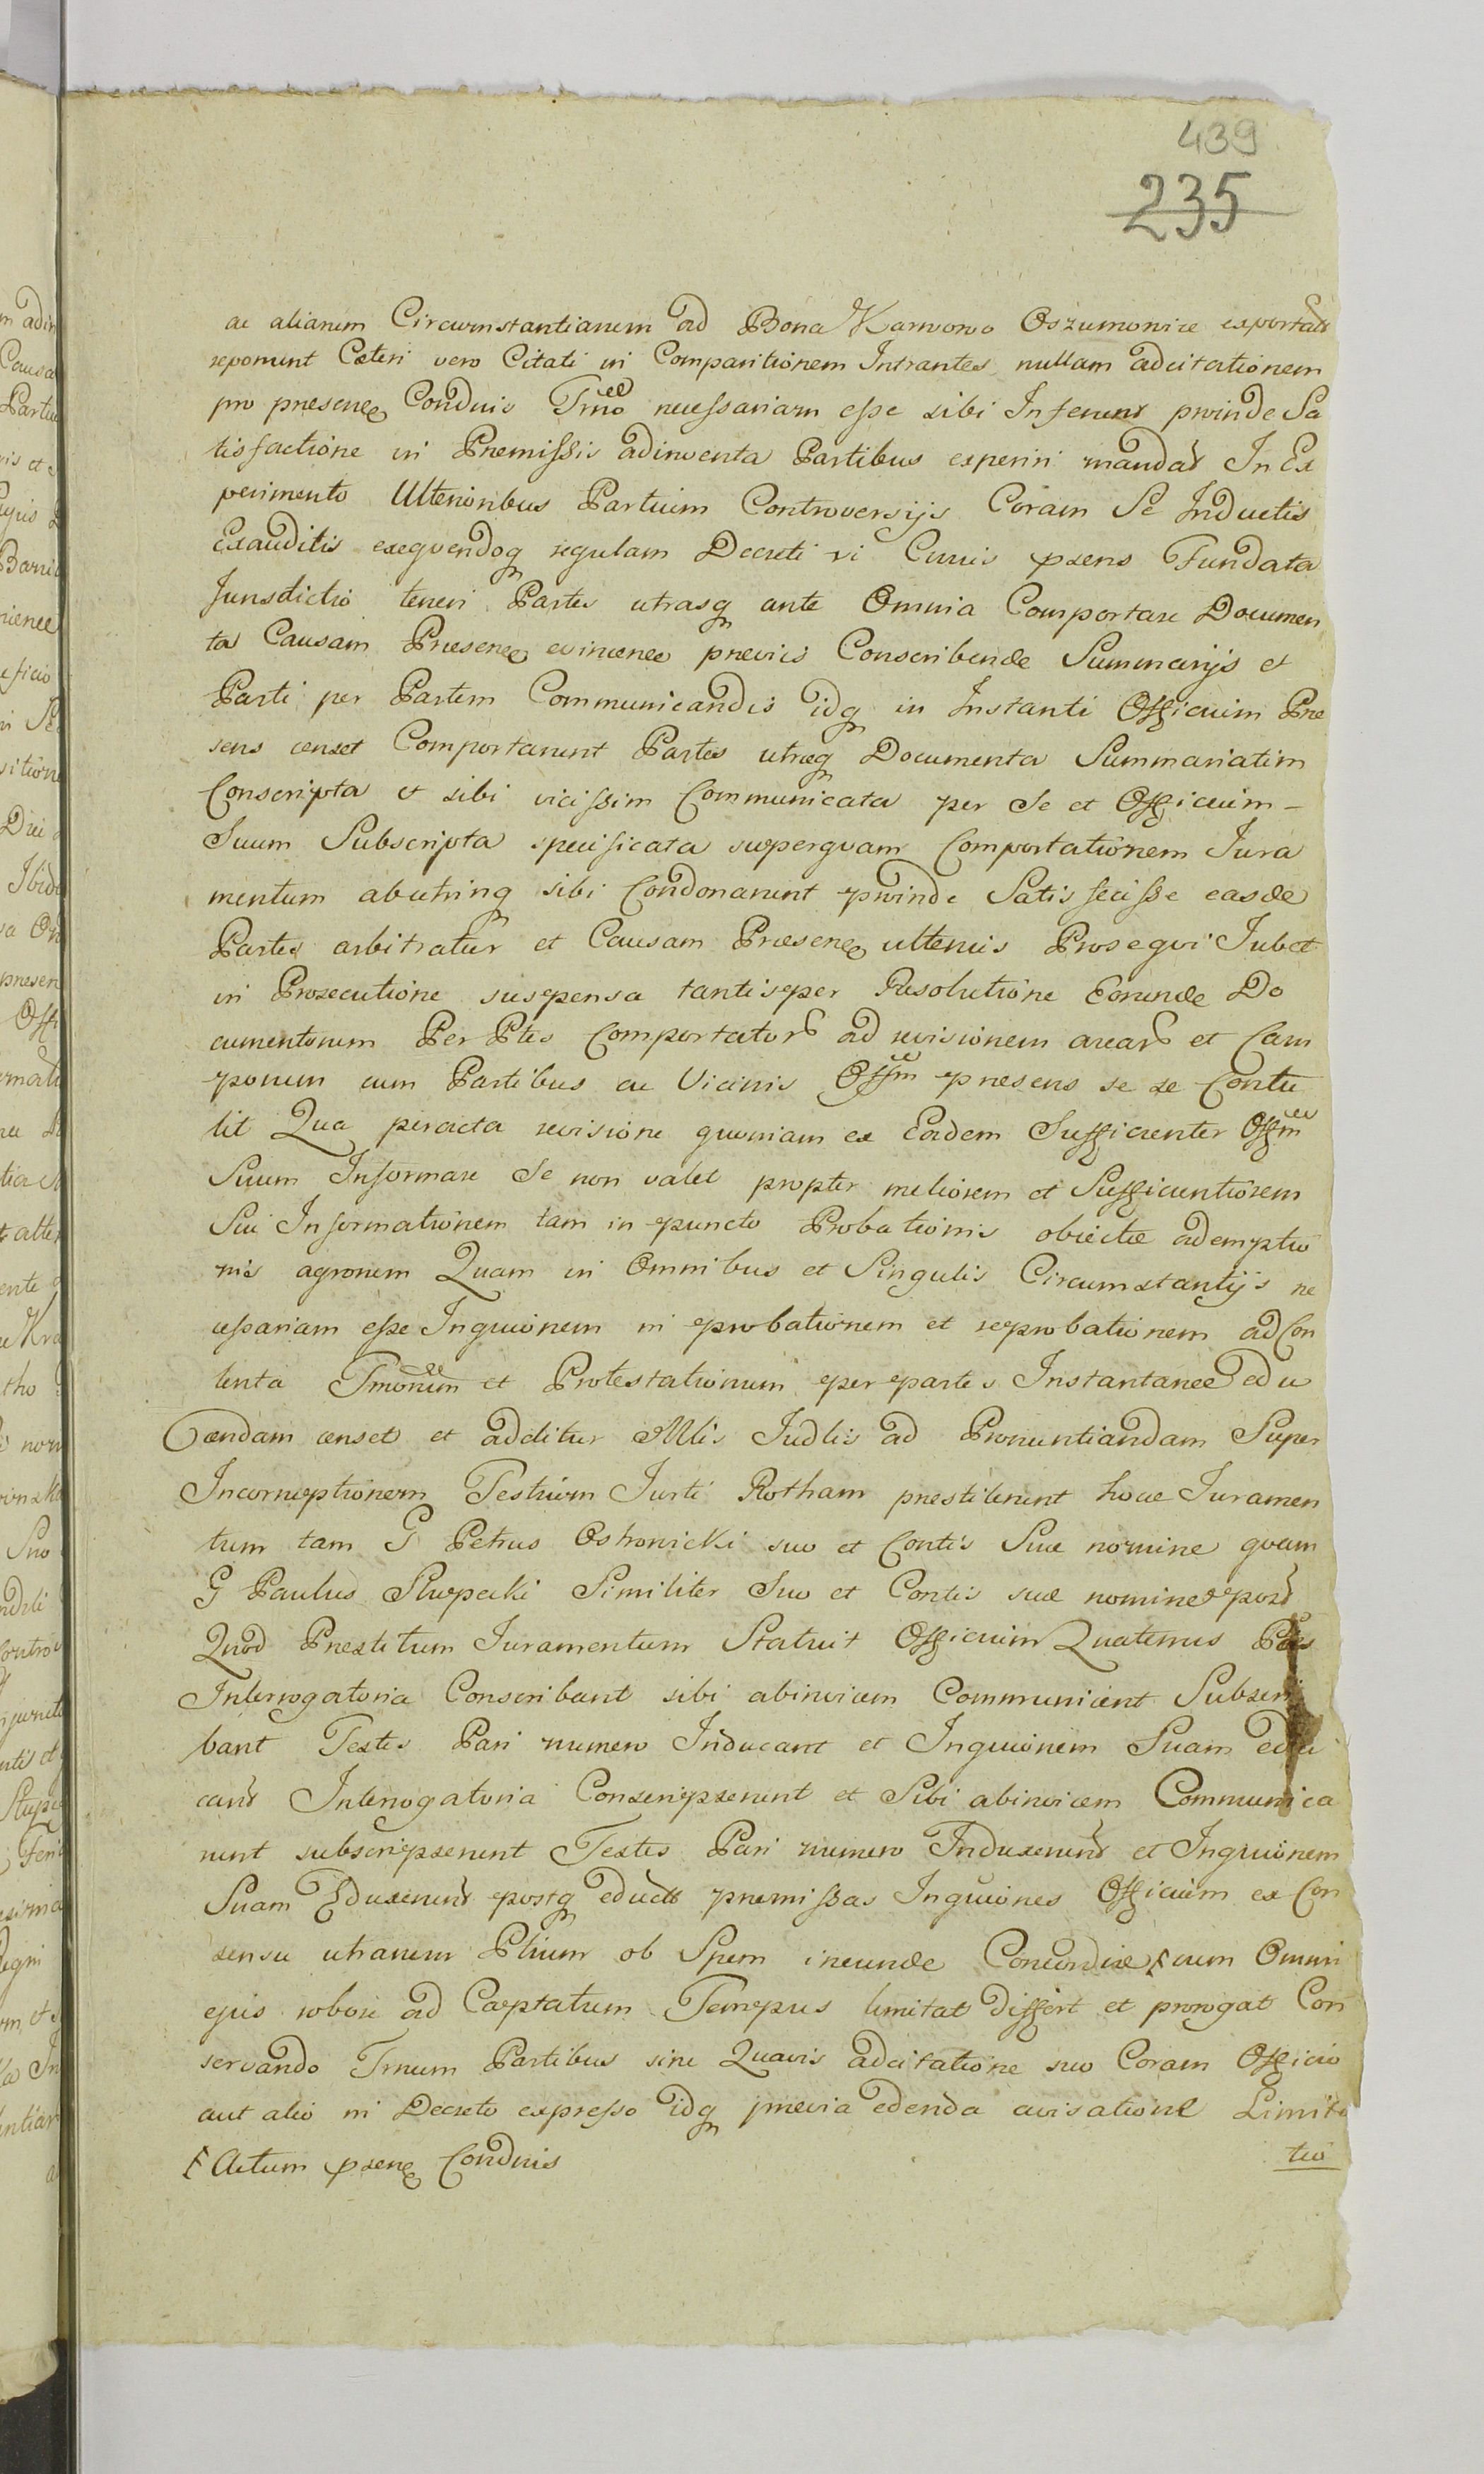 439
235
ac aliarum Circumstantiarum ad Bona Karwowo Oszumonice exportatr
reponunt Cæteri vero Citati in Comparitionem Intrantes nullam adcitationem
pro presene Condnis Trno necessariam esse sibi Inferunt proinde Sa
tisfactione in Premissis adinventa Partibus experiri mandat In Ex
perimento Ulterioribus Partium Controversijs Coram Se Inductis
Exauditis exequendoq regulam Decreti vi Cuius psens Fundata
Jurisdictio teneri Partes utrasq ante Omnia Comportare Documen
ta Causam Præsene evincenee previis Conscribende Summarijs et
Parti per Partem Communicandis idq in Instanti Officium Præ
sens censet Comportarunt Partes utræq Documenta Summariatim
Conscripta et sibi vicissim Communicata per Se et Officium
Suum Subscripta specificata superquam Comportationem Jura
mentum abutrinq sibi Condonarunt proinde Satis fecisse easde
Partes arbitratur et Causam Præsene ulterius Prosequi Jubet
in Prosecutione suspensa tantisper Resolutione Eorunde Do
cumentorum Per Ptes Comportator ad revisionem arear et Cam
porum cum Partibus ac Vicinis Offm presens se se Contu
lit Qua peracta revisione quoniam ex Eadem Sufficienter Offm
Suum Informare Se non valet propter meliorem et Sufficientiorem
Sui Informationem tam in puncto Probationis obiectæ ademptio
nis agrorum Quam in Omnibus et Singulis Circumstantijs ne
cessariam esse Inquionem in probationem et reprobationem ad Con
tenta Tmonum et Protestationum per partes Instantanee edu
cendam censet et additur Mlis Judlis ad Pronuntiandam Super
Incorruptionem Testium Jurti Rotham prestiterunt hocce Juramen
tum tam G Petrus Ostrowicki suo et Contis Suæ nomine quam
G Paulus Słupecki Similiter Suo et Contis suæ nomine post
Quod Prestitum Juramentum Statuit Officium Quatenus Ptes
Interrogatoria Conscribant sibi abinvicem Communicent Subscri
bant Testes Pari numero Inducant et Inquionem Suam edu
cant Interrogatoria Conscripserunt et Sibi abinvicem Communica
runt subscripserunt Testes Pari numero Induxerunt et Inquionem
Suam Eduxerunt postq eductas premissas Inquiones Officium ex Con
sensu utrarum Ptium ob Spem ineunde Concordiæ ꝭ cum Omni
ejus robore ad Captatum Tempus limitat differt et prorogat Con
servando Trnum Partibus sine Quavis adcitatione suo Coram Officio
aut alio in Decreto expresso idq previa edenda avisatione Limita
ꝭ Actum psene Condnis
tio